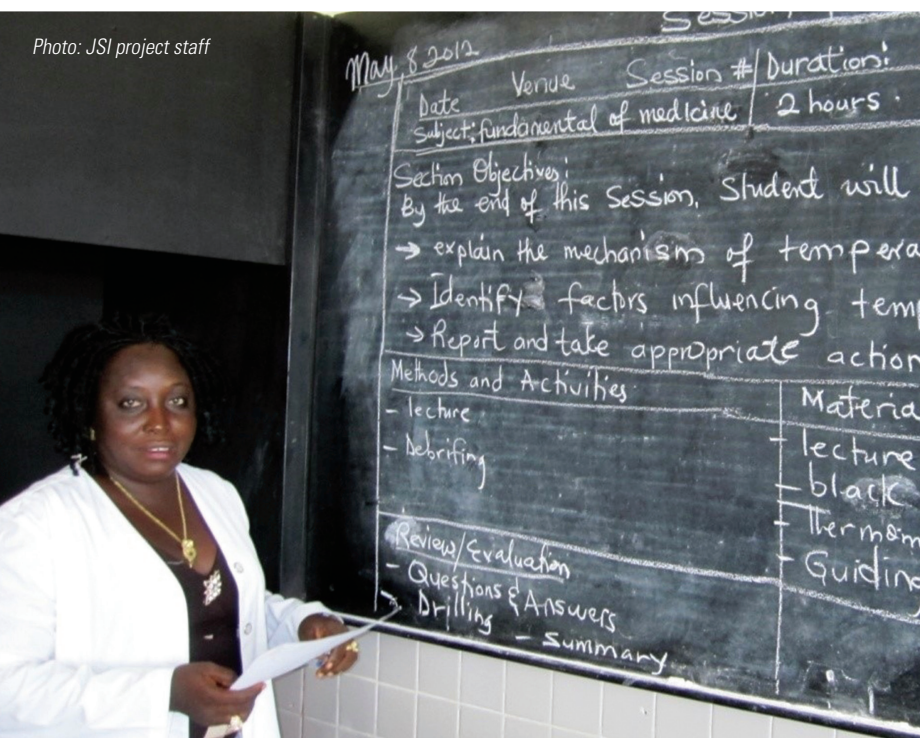 Photo: JSI project staff
Session
May, 8 2012
Date Venue Session #/ Duration:
Subject: fundamental of medicine 2 hours.
Section Objectives:
By the end of this Session, Student will
→ explain the mechanism of tempera
→ Identify factors influencing tem
→ Report and take appropriate action
Methods and Activities
- lecture
- Debrifing
Materia
- lecture
- black
- Thermom
- Guidin
Review/Evaluation
- Questions & Answers
- Drilling - Summary